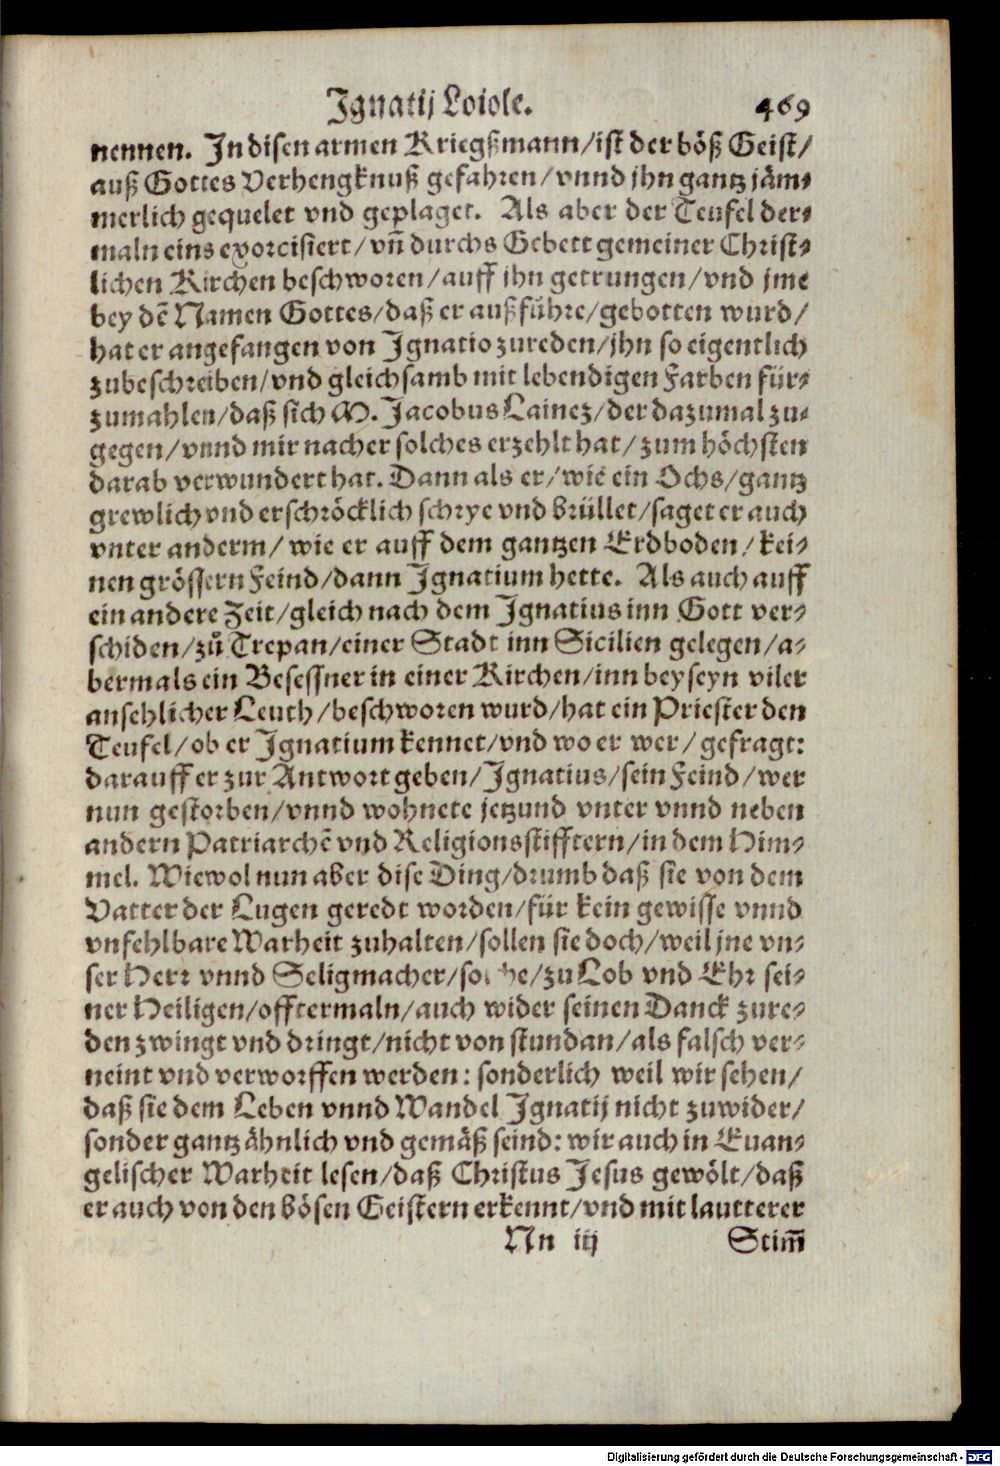 Ignatij Loiole. 469
nennen. In disen armen Kriegßmann/ist der böß Geist/
auß Gottes Verhengknuß gefahren/vnnd jhn gantz jäm-
merlich gequelet vnd geplaget. Als aber der Teufel der-
maln eins exorcisiert/vn̄ durchs Gebett gemeiner Christ-
lichen Kirchen beschworen/auff jhn getrungen/vnd jme
bey dē Namen Gottes/daß er außführe/gebotten wurd/
hat er angefangen von Ignatio zureden/jhn so eigentlich
zubeschreiben/vnd gleichsamb mit lebendigen Farben für-
zumahlen/daß sich M. Jacobus Lainez/der dazumal zu-
gegen/vnnd mir nacher solches erzehlt hat/zum höchsten
darab verwundert hat. Dann als er/wie ein Ochs/gantz
grewlich vnd erschröcklich schrye vnd brüllet/saget er auch
vnter anderm/wie er auff dem gantzen Erdboden/kei-
nen grössern Feind/dann Ignatium hette. Als auch auff
ein andere Zeit/gleich nach dem Ignatius inn Gott ver-
schiden/zů Trepan/einer Stadt inn Sicilien gelegen/a-
bermals ein Besessner in einer Kirchen/inn beyseyn viler
ansehlicher Leuth/beschworen wurd/hat ein Priester den
Teufel/ob er Ignatium kennet/vnd wo er wer/gefragt:
darauff er zur Antwort geben/Ignatius/sein Feind/wer
nun gestorben/vnnd wohnete jetzund vnter vnnd neben
andern Patriarchē vnd Religionsstifftern/in dem Him-
mel. Wiewol nun aber dise Ding/drumb daß sie von dem
Vatter der Lugen geredt worden/für kein gewisse vnnd
vnfehlbare Warheit zuhalten/sollen sie doch/weil jne vn-
ser Herr vnnd Seligmacher/ /zu Lob vnd Ehr sei-
ner Heiligen/offtermaln/auch wider seinen Danck zure-
den zwingt vnd dringt/nicht von stundan/als falsch ver-
neint vnd verworffen werden: sonderlich weil wir sehen/
daß sie dem Leben vnnd Wandel Ignatij nicht zuwider/
sonder gantz ähnlich vnd gemäß seind: wir auch in Euan-
gelischer Warheit lesen/daß Christus Jesus gewölt/daß
er auch von den bösen Geistern erkennt/vnd mit lautterer
Nn iij Stim̄
Digitalisierung gefördert durch die Deutsche Forschungsgemeinschaft - DFG